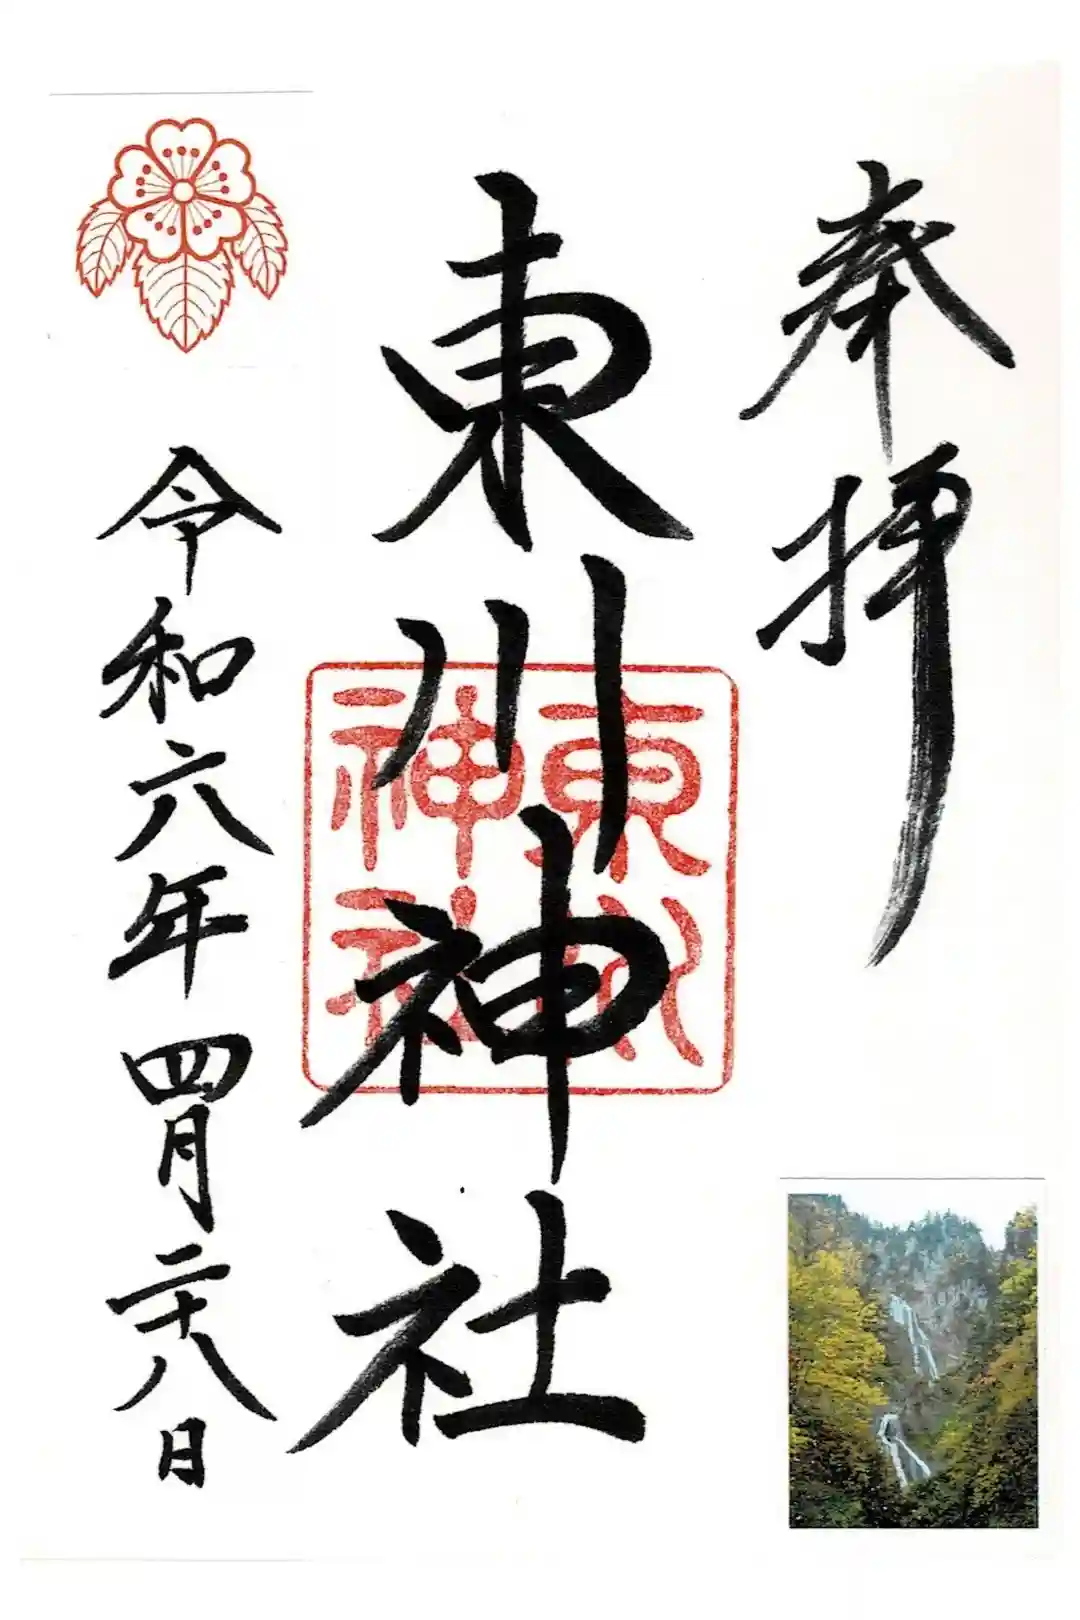 奉拝
東川神社
東川神社
令和六年四月二十八日